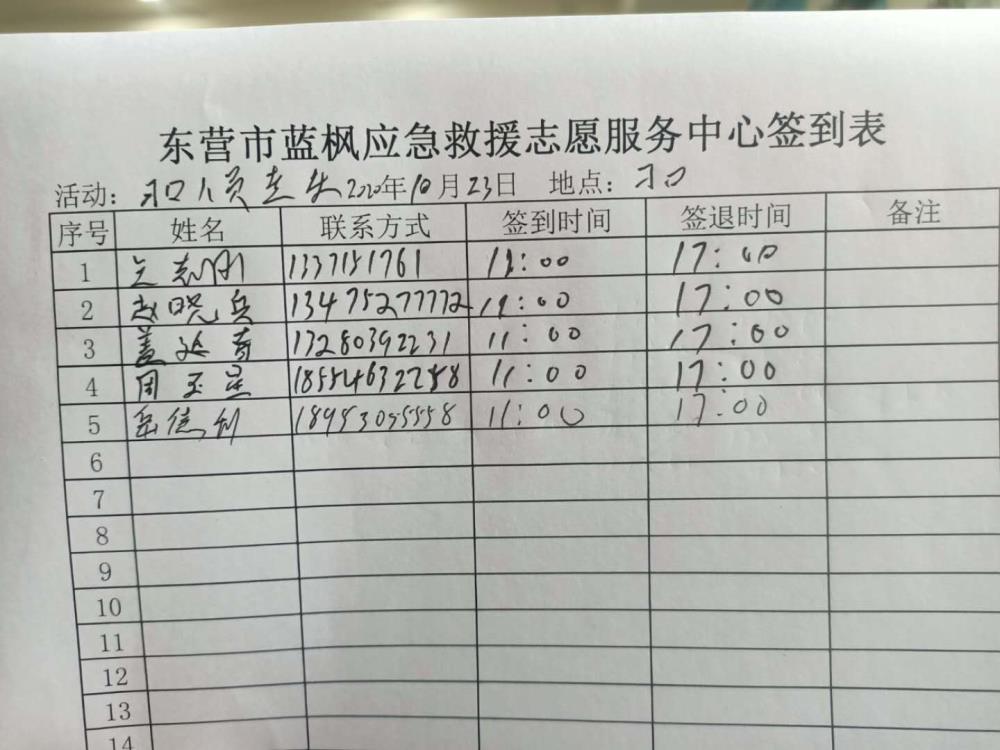 东营市蓝枫应急救援志愿服务中心签到表
活动： 刁口人员走失 2020年10月23日 地点：刁口
序号 姓名 联系方式 签到时间 签退时间 备注
1 志刚 1337151761 11:00 17:00
2 赵晓兵 13475277772 11:00 17:00
3 盖延奇 13280392231 11:00 17:00
4 周玉星 18554632758 11:00 17:00
5 岳德利 18953095558 11:00 17:00
6
7
8
9
10
11
12
13
14